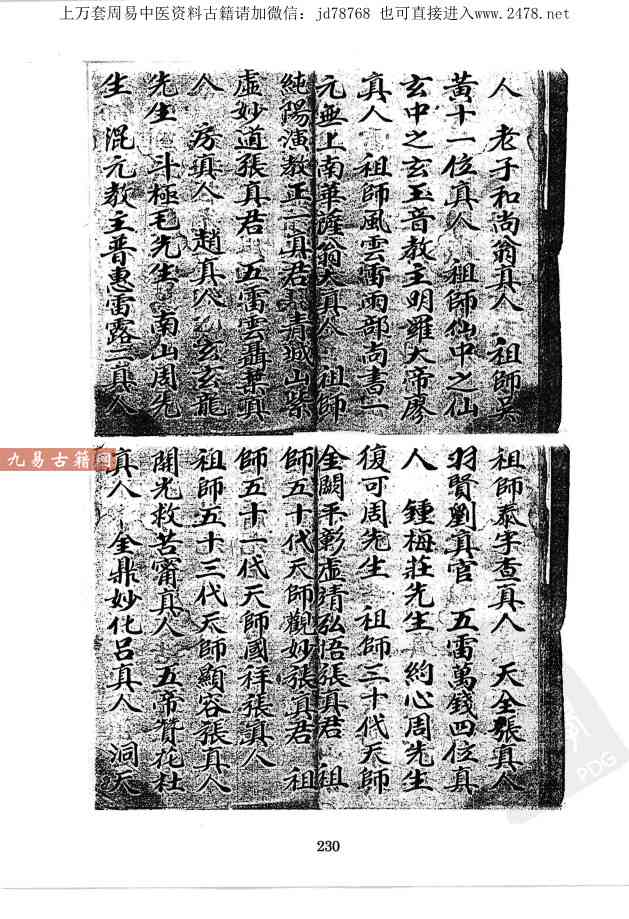 上万套周易中医资料古籍请加微信：jd78768 也可直接进入www.2478.net
人　老子和尚翁真人　祖師吳
黃十一位真人　祖師仙中之仙
玄中之玄玉音教主明羅大帝廖
真人　祖師風雲雷雨部尚書一
元無上南華薩翁大真人　祖師
純陽演教正一真君　青城山紫
虛妙道張真君　五雷雲鶴葉真
人　房真人　趙真人　玄玄龍
先生　斗極毛先生　南山周先
生　混元教主普惠雷露二真人
祖師泰宇查真人　天全張真人
羽賢劉真官　五雷萬錢四位真
人　鍾梅莊先生　約心周先生
復可周先生　祖師三十代天師
金闕平彰虛靖弘悟張真君　祖
師五十代天師觀妙張真君　祖
師五十一代天師國祥張真人
祖師五十三代天師顯容張真人
開光救苦甯真人　五帝贊花杜
真人　金鼎妙化呂真人　洞天
九易古籍网
PDG
230